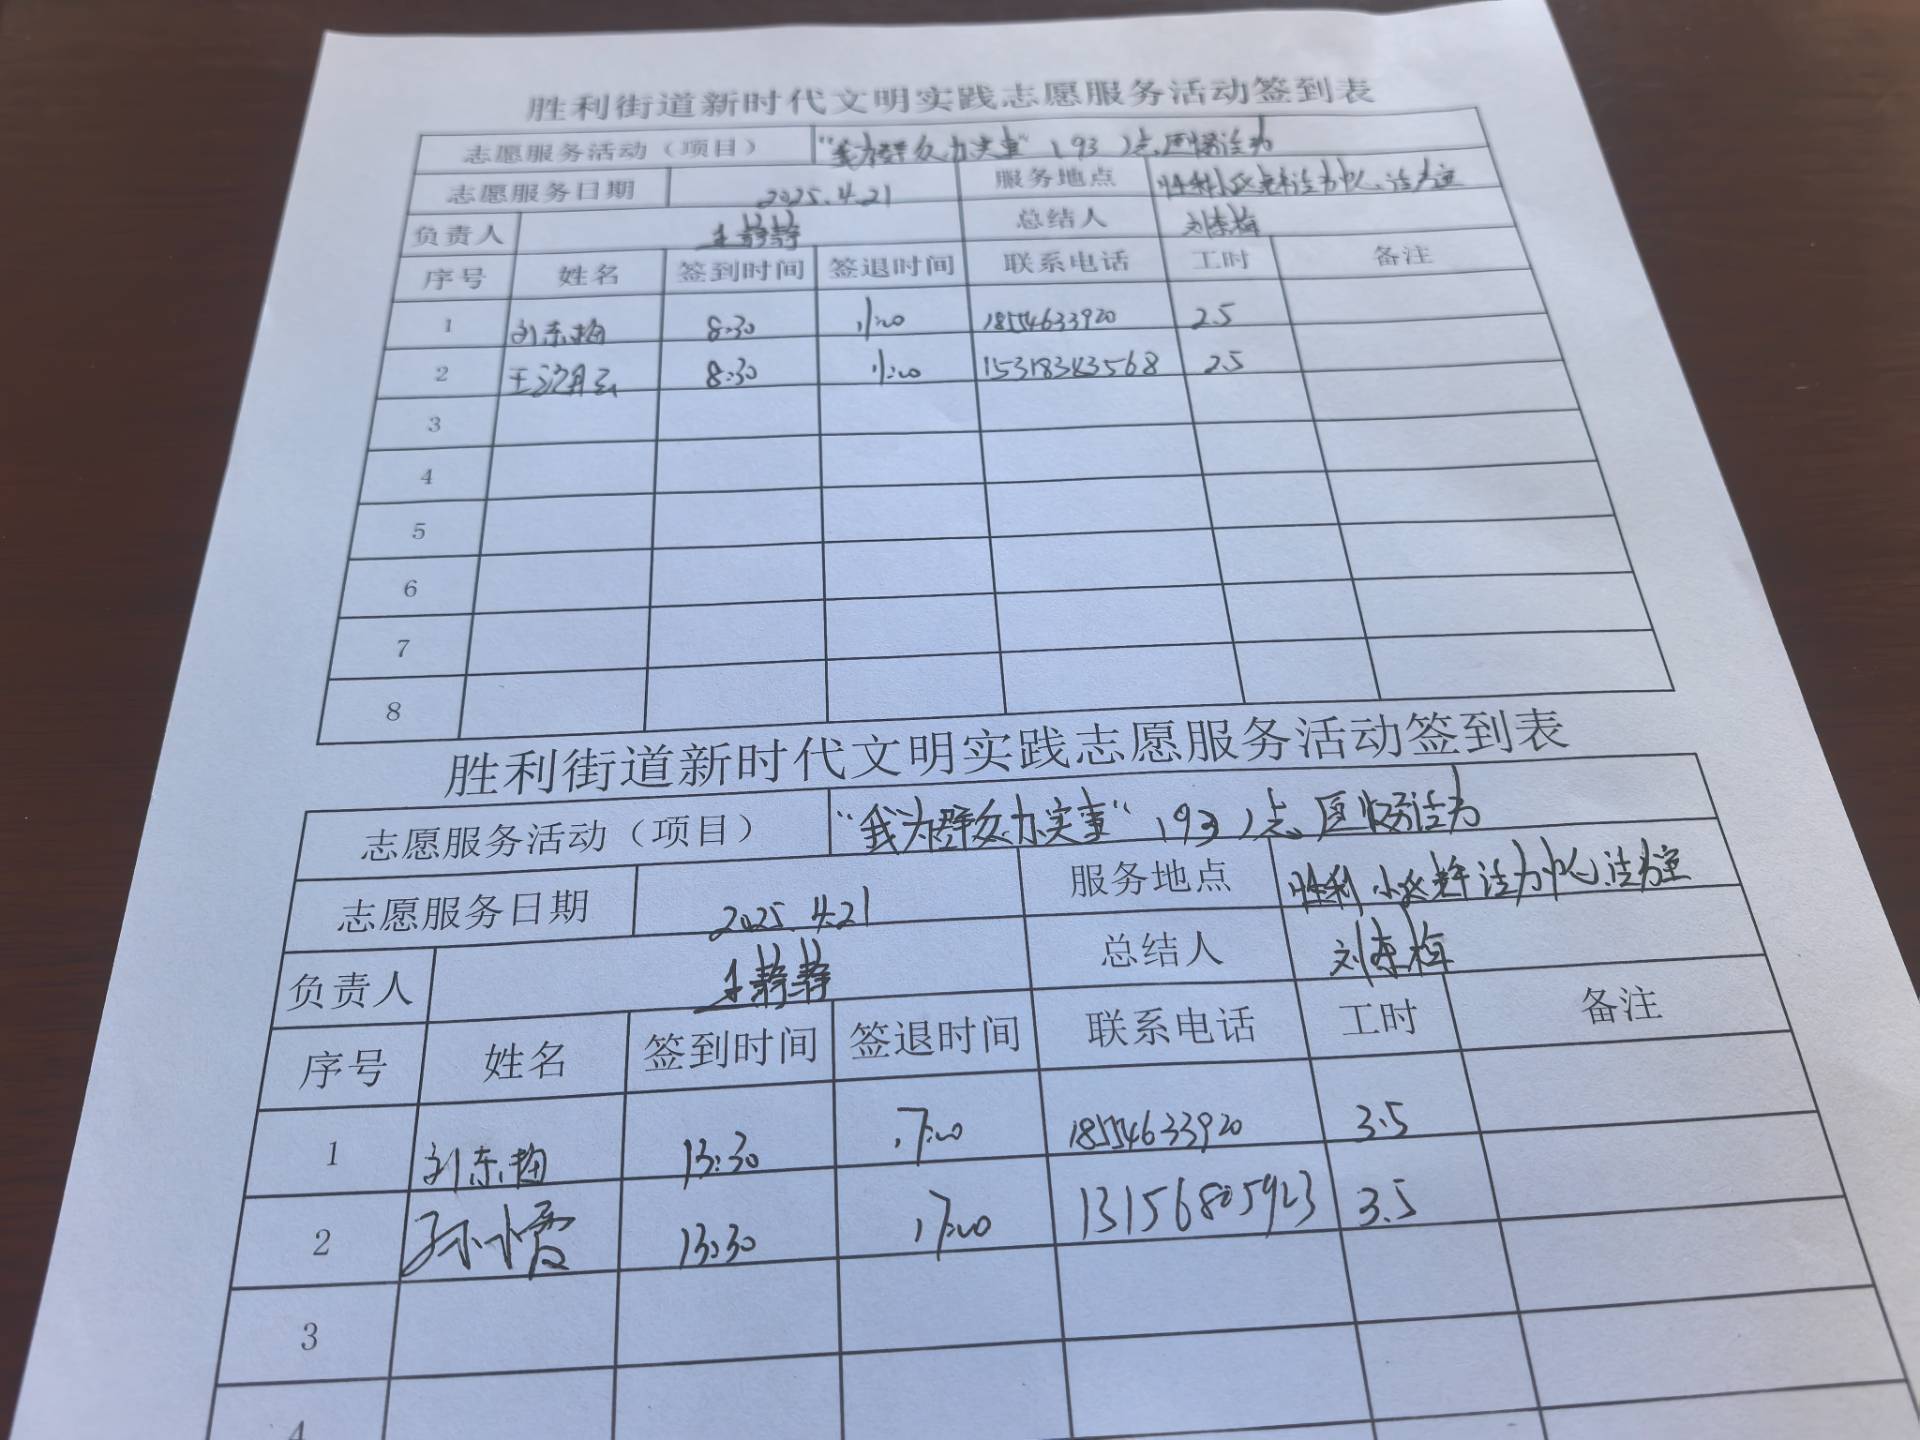 胜利街道新时代文明实践志愿服务活动签到表
志愿服务活动（项目） "我为群众办实事"（93）点 活力
志愿服务日期 2025.4.21 服务地点 胜利小区老年活力中心、活力室
负责人 王静静 总结人 刘东梅
序号 姓名 签到时间 签退时间 联系电话 工时 备注
1 刘东梅 8:30 11:00 18554633920 2.5
2 王 8:30 11:00 15318343568 2.5
3
4
5
6
7
8
胜利街道新时代文明实践志愿服务活动签到表
志愿服务活动（项目） "我为群众办实事"（93）点 活力
志愿服务日期 2025.4.21 服务地点 胜利小区老年活力中心、活力室
负责人 王静静 总结人 刘东梅
序号 姓名 签到时间 签退时间 联系电话 工时 备注
1 刘东梅 13:30 17:00 18554633920 3.5
2 孙小霞 13:30 17:00 13156805923 3.5
3
4